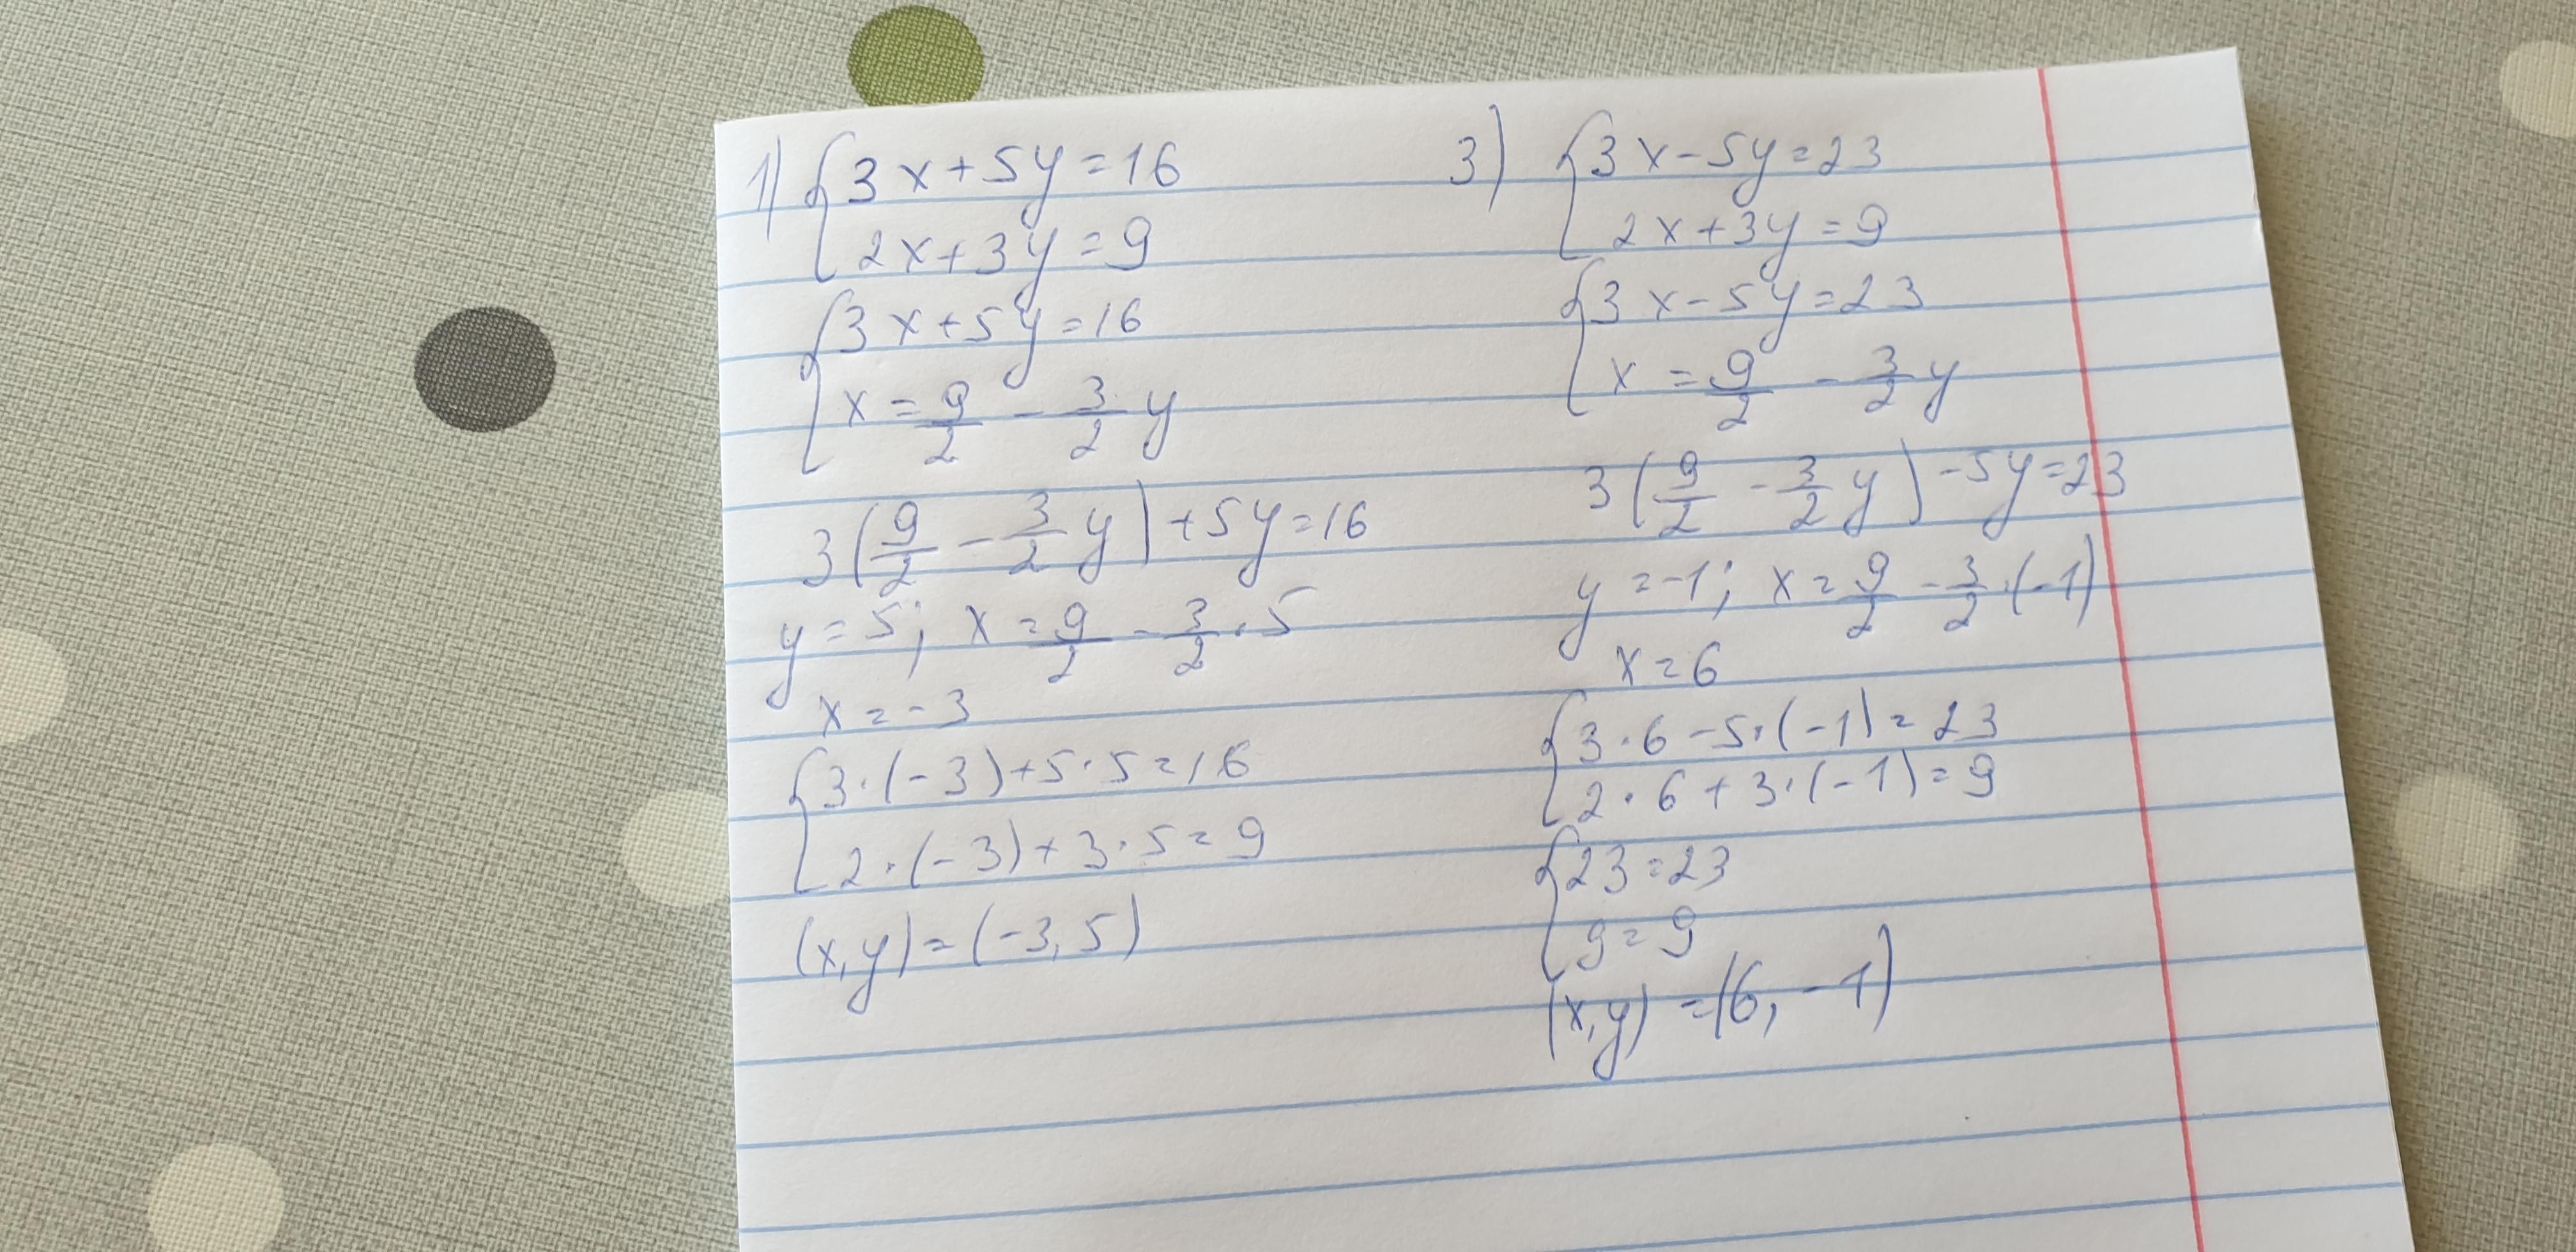 1) {3x+5y=16
2x+3y=9
{3x+5y=16
x=9/2-3/2y
3(9/2-3/2y)+5y=16
y=5; x=9/2-3/2·5
x=-3
{3·(-3)+5·5=16
2·(-3)+3·5=9
(x,y)=(-3,5)
3) {3x-5y=23
2x+3y=9
{3x-5y=23
x=9/2-3/2y
3(9/2-3/2y)-5y=23
y=-1; x=9/2-3/2·(-1)
x=6
{3·6-5·(-1)=23
2·6+3·(-1)=9
{23=23
9=9
(x,y)=(6,-1)